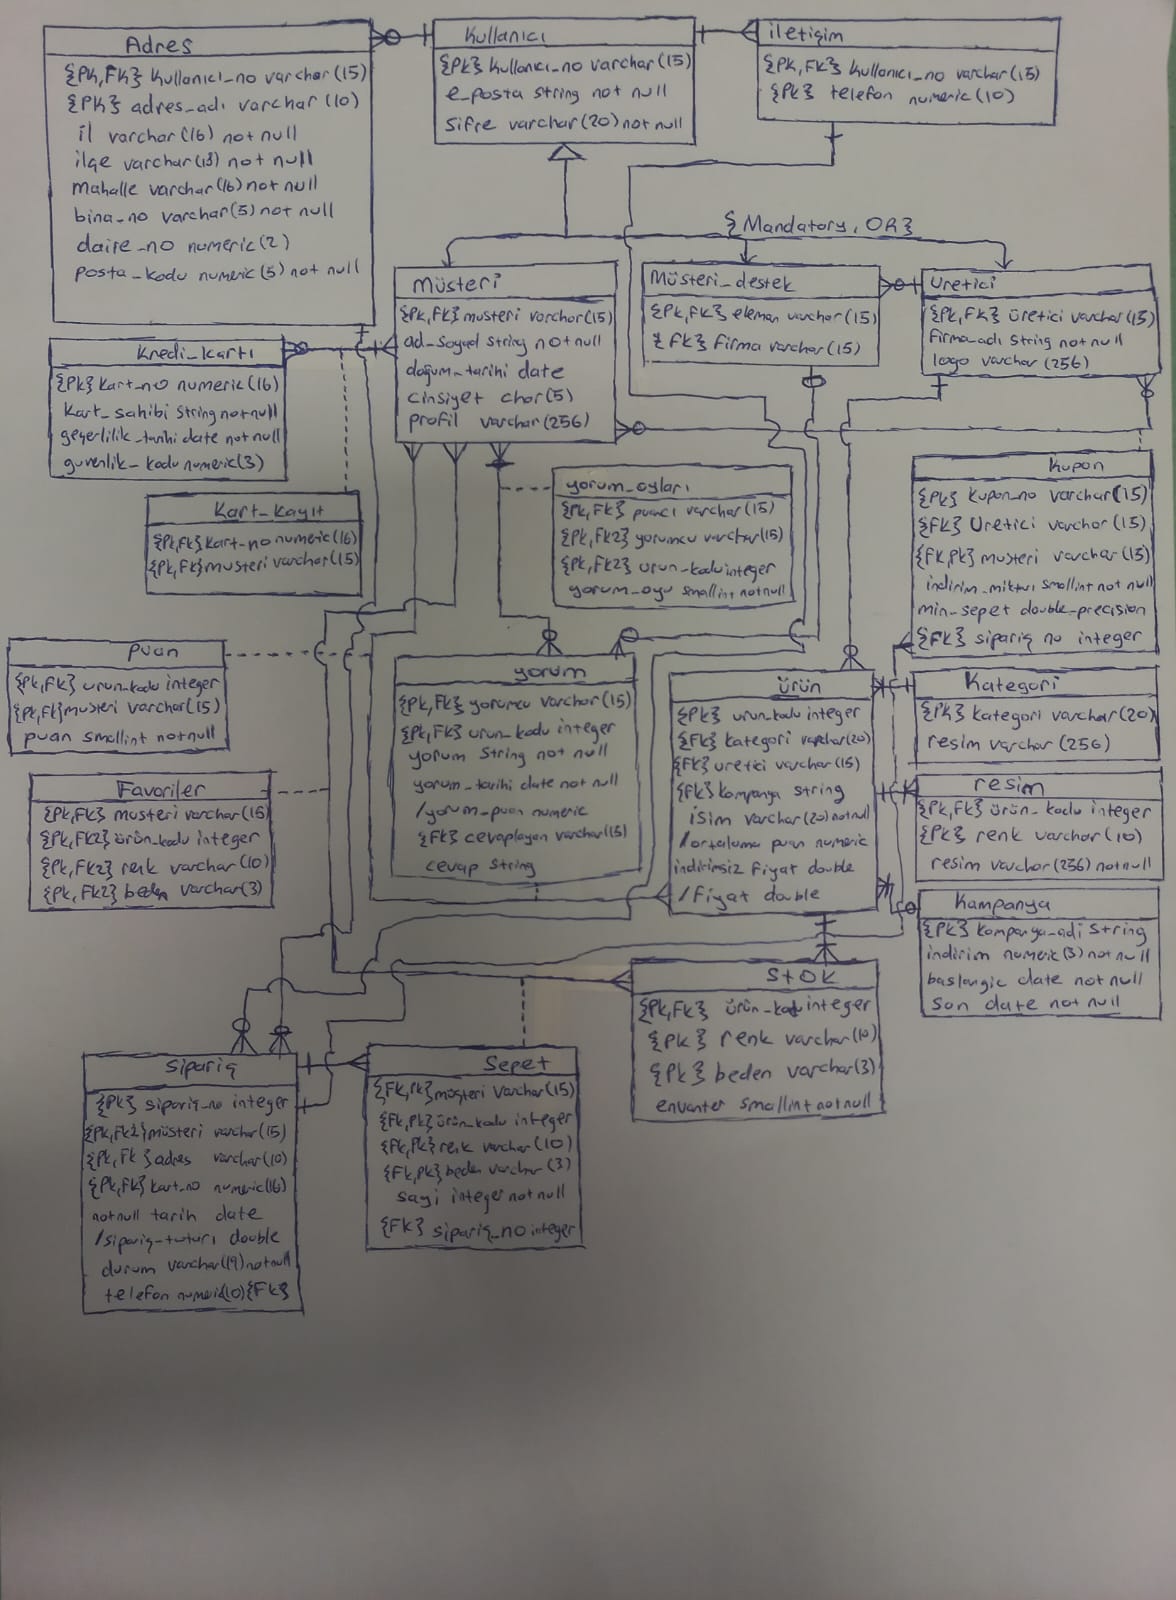 Adres
{Pk,Fk} kullanıcı_no varchar(15)
{Pk} adres_adı varchar(10)
il varchar(16) not null
ilçe varchar(13) not null
mahalle varchar(16) not null
bina_no varchar(5) not null
daire_no numeric(2)
posta_kodu numeric(5) not null
Kullanıcı
{Pk} kullanıcı_no varchar(15)
e_posta string not null
sifre varchar(20) not null
iletişim
{Pk,Fk} kullanıcı_no varchar(15)
{Pk} telefon numeric(10)
{Mandatory, OR}
Müsteri
{Pk,Fk} musteri varchar(15)
ad_soyad string not null
doğum_tarihi date
cinsiyet char(5)
profil varchar(256)
Müsteri_destek
{Pk,Fk} eleman varchar(15)
{Fk} firma varchar(15)
Uretici
{Pk,Fk} üretici varchar(15)
firma_adı string not null
logo varchar(256)
Kredi_kartı
{Pk} kart_no numeric(16)
kart_sahibi string not null
geçerlilik_tarihi date not null
guvenlik_kodu numeric(3)
Kart_kayıt
{Pk,Fk} kart_no numeric(16)
{Pk,Fk} musteri varchar(15)
yorum_oyları
{Pk,Fk} puancı varchar(15)
{Pk,Fk2} yorumcu varchar(15)
{Pk,Fk2} urun_kodu integer
yorum_oyu smallint not null
Kupon
{Pk} kupon_no varchar(15)
{Fk} Uretici varchar(15)
{Fk,Pk} musteri varchar(15)
indirim_miktarı smallint not null
min_sepet double_precision
{Fk} sipariş no integer
Puan
{Pk,Fk} urun_kodu integer
{Pk,Fk} musteri varchar(15)
puan smallint not null
yorum
{Pk,Fk} yorumcu varchar(15)
{Pk,Fk} urun_kodu integer
yorum string not null
yorum_tarihi date not null
/yorum_puan numeric
{Fk} cevaplayan varchar(15)
cevap string
ürün
{Pk} urun_kodu integer
{Fk} kategori varchar(20)
{Fk} uretici varchar(15)
{Fk} kampanya string
isim varchar(20) not null
/ortalama puan numeric
indirimsiz fiyat double
/Fiyat double
Kategori
{Pk} kategori varchar(20)
resim varchar(256)
resim
{Pk,Fk} ürün_kodu integer
{Pk} renk varchar(10)
resim varchar(256) not null
Favoriler
{Pk,Fk} musteri varchar(15)
{Pk,Fk2} ürün_kodu integer
{Pk,Fk2} renk varchar(10)
{Pk,Fk2} beden varchar(3)
Kampanya
{Pk} kampanya_adi string
indirim numeric(3) not null
baslangic date not null
son date not null
Stok
{Pk,Fk} ürün_kodu integer
{Pk} renk varchar(10)
{Pk} beden varchar(3)
envanter smallint not null
Sipariş
{Pk} sipariş_no integer
{Pk,Fk2} müsteri varchar(15)
{Pk,Fk} adres varchar(10)
{Pk,Fk} kart_no numeric(16)
not null tarih date
/sipariş_tutarı double
durum varchar(19) not null
telefon numeric(10) {Fk}
Sepet
{Fk,Pk} müşteri varchar(15)
{Fk,Pk} ürün_kodu integer
{Fk,Pk} renk varchar(10)
{Fk,Pk} beden varchar(3)
sayi integer not null
{Fk} sipariş_no integer